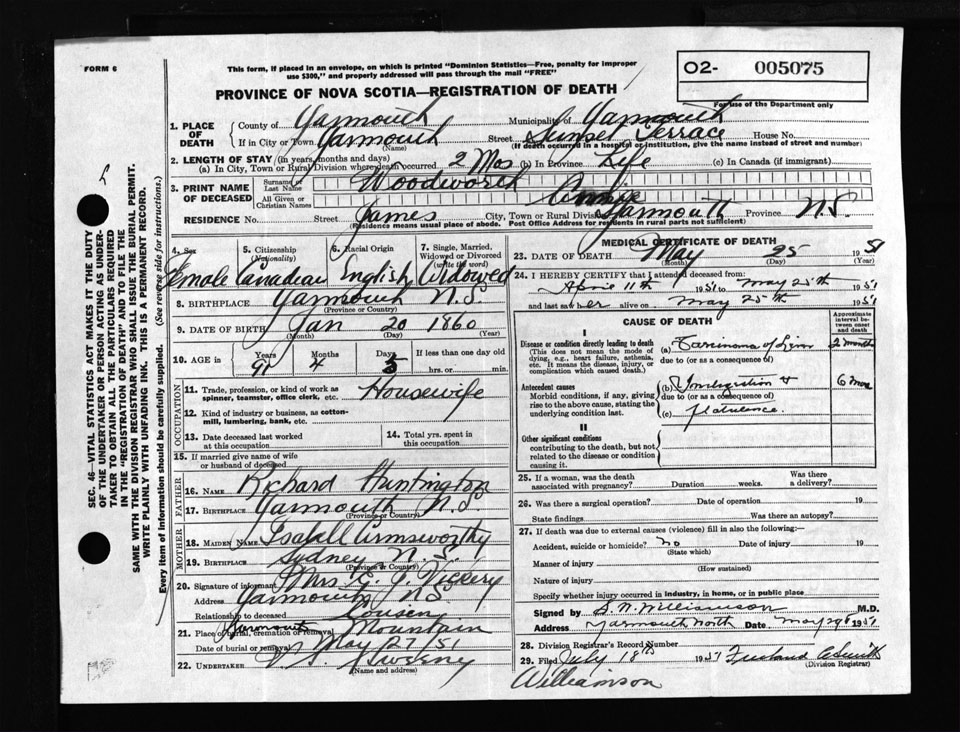 FORM 6
This form, if placed in an envelope, on which is printed "Dominion Statistics—Free, penalty for improper
use $300," and properly addressed will pass through the mail "FREE"
PROVINCE OF NOVA SCOTIA—REGISTRATION OF DEATH
O2- 005075
For use of the Department only
1. PLACE OF DEATH { County of Yarmouth Municipality of Yarmouth
If in City or Town Yarmouth (Name) Street Sunset Terrace House No.
(If death occurred in a hospital or institution, give the name instead of street and number)
2. LENGTH OF STAY (in years, months and days)
(a) In City, Town or Rural Division where death occurred 2 Mos (b) In Province Life (c) In Canada (if immigrant)
3. PRINT NAME OF DECEASED Surname or Last Name Woodworth
All Given or Christian Names Annie
RESIDENCE No. Street James City, Town or Rural Division Yarmouth Province N.S.
(Residence means usual place of abode. Post Office Address for residents in rural parts not sufficient)
4. Sex Female
5. Citizenship (Nationality) Canadian
6. Racial Origin English
7. Single, Married, Widowed or Divorced (write the word) Widowed
8. BIRTHPLACE Yarmouth N.S.
(Province or Country)
9. DATE OF BIRTH Jan 20 1860
(Month) (Day) (Year)
10. AGE in Years 91 Months 4 Days 5 If less than one day old
hrs. or min.
OCCUPATION
11. Trade, profession, or kind of work as
spinner, teamster, office clerk, etc. Housewife
12. Kind of industry or business, as cotton-
mill, lumbering, bank, etc.
13. Date deceased last worked
at this occupation
14. Total yrs. spent in
this occupation
15. If married give name of wife
or husband of deceased
FATHER
16. NAME Richard Huntington
17. BIRTHPLACE Yarmouth N.S.
(Province or Country)
MOTHER
18. MAIDEN NAME Isabell Armsworthy
19. BIRTHPLACE Sydney N.S.
(Province or Country)
20. Signature of informant Mrs. E. J. Vickery
Address Yarmouth N.S.
Relationship to deceased Cousen
21. Place of burial, cremation or removal Mountain
Date of burial or removal May 27/51
22. UNDERTAKER V.S. Sweeny
(Name and address)
MEDICAL CERTIFICATE OF DEATH
23. DATE OF DEATH May 25 1951
(Month) (Day) (State)
24. I HEREBY CERTIFY that I attended deceased from:
April 11th 1951 to May 25th 1951
and last saw her alive on May 25th 1951
CAUSE OF DEATH
Approximate interval between onset and death
I
Disease or condition directly leading to death
(This does not mean the mode of
dying, e.g., heart failure, asthenia,
etc. It means the disease, injury, or
complication which caused death.)
(a) Carcinoma of Liver 2 months
due to (or as a consequence of)
Antecedent causes
Morbid conditions, if any, giving
rise to the above cause, stating the
underlying condition last.
(b) Indigestion & 6 mos
due to (or as a consequence of)
(c) flatulence.
II
Other significant conditions
contributing to the death, but not
related to the disease or condition
causing it.
25. If a woman, was the death
associated with pregnancy? Duration weeks. Was there
a delivery?
26. Was there a surgical operation? Date of operation 19
State findings Was there an autopsy?
27. If death was due to external causes (violence) fill in also the following:-
Accident, suicide or homicide? no Date of injury 19
(State which)
Manner of injury
(How sustained)
Nature of injury
Specify whether injury occurred in industry, in home, or in public place
Signed by S. N. Williamson M.D.
Address Yarmouth North Date May 29 1951
28. Division Registrar's Record Number
29. Filed July 18th 1951
(Division Registrar)
Williamson
SEC. 46—VITAL STATISTICS ACT MAKES IT THE DUTY
OF THE UNDERTAKER OR PERSON ACTING AS UNDER-
TAKER TO OBTAIN ALL THE PARTICULARS REQUIRED
IN THE "REGISTRATION OF DEATH" AND TO FILE THE
SAME WITH THE DIVISION REGISTRAR WHO SHALL ISSUE THE BURIAL PERMIT.
WRITE PLAINLY WITH UNFADING INK. THIS IS A PERMANENT RECORD.
Every item of information should be carefully supplied. (See reverse side for instructions.)